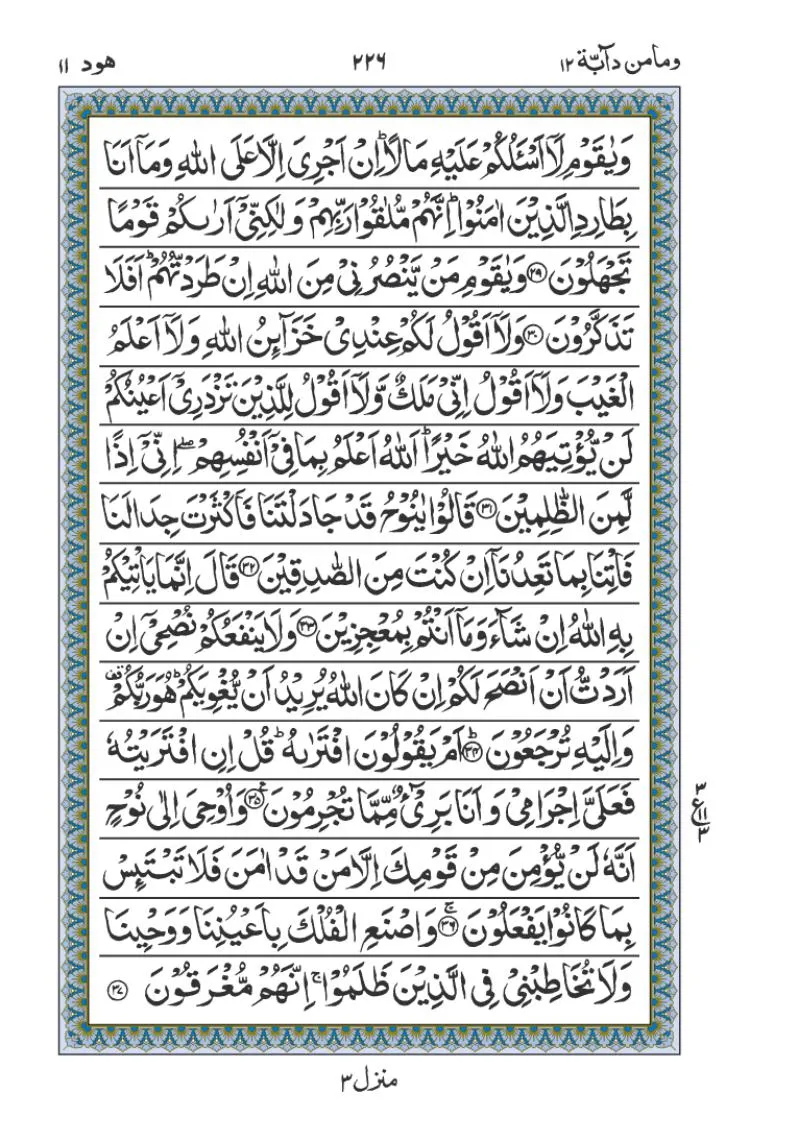 وما من دآبّة ١٢
٢٢٦
هود ١١
وَيٰقَوۡمِ لَاۤ اَسۡـَٔلُكُمۡ عَلَيۡهِ مَالًا ؕ اِنۡ اَجۡرِىَ اِلَّا عَلَى اللّٰهِ وَمَاۤ اَنَا
بِطَارِدِ الَّذِيۡنَ اٰمَنُوۡا ؕ اِنَّهُمۡ مُّلٰقُوۡا رَبِّهِمۡ وَلٰكِنِّىۡۤ اَرٰٮكُمۡ قَوۡمًا
تَجۡهَلُوۡنَ ﴿۲۹﴾ وَيٰقَوۡمِ مَنۡ يَّنۡصُرُنِىۡ مِنَ اللّٰهِ اِنۡ طَرَدتُّهُمۡ ؕ اَفَلَا
تَذَكَّرُوۡنَ ﴿۳۰﴾ وَلَاۤ اَقُوۡلُ لَكُمۡ عِنۡدِىۡ خَزَآٮِٕنُ اللّٰهِ وَلَاۤ اَعۡلَمُ
الۡغَيۡبَ وَلَاۤ اَقُوۡلُ اِنِّىۡ مَلَكٌ وَّلَاۤ اَقُوۡلُ لِلَّذِيۡنَ تَزۡدَرِىۡۤ اَعۡيُنُكُمۡ
لَنۡ يُّؤۡتِيَهُمُ اللّٰهُ خَيۡرًا ؕ اَللّٰهُ اَعۡلَمُ بِمَا فِىۡۤ اَنۡفُسِهِمۡ ۖۚ اِنِّىۡۤ اِذًا
لَّمِنَ الظّٰلِمِيۡنَ ﴿۳۱﴾ قَالُوۡا يٰنُوۡحُ قَدۡ جَادَلۡتَنَا فَاَكۡثَرۡتَ جِدَالَنَا
فَاۡتِنَا بِمَا تَعِدُنَاۤ اِنۡ كُنۡتَ مِنَ الصّٰدِقِيۡنَ ﴿۳۲﴾ قَالَ اِنَّمَا يَاۡتِيۡكُمۡ
بِهِ اللّٰهُ اِنۡ شَآءَ وَمَاۤ اَنۡتُمۡ بِمُعۡجِزِيۡنَ ﴿۳۳﴾ وَلَا يَنۡفَعُكُمۡ نُصۡحِىۡۤ اِنۡ
اَرَدْتُّ اَنۡ اَنۡصَحَ لَكُمۡ اِنۡ كَانَ اللّٰهُ يُرِيۡدُ اَنۡ يُّغۡوِيَكُمۡ ؕ هُوَ رَبُّكُمۡ
وَاِلَيۡهِ تُرۡجَعُوۡنَ ؕ ﴿۳۴﴾ اَمۡ يَقُوۡلُوۡنَ افۡتَرٰٮهُ ؕ قُلۡ اِنِ افۡتَرَيۡتُهٗ
فَعَلَىَّ اِجۡرَامِىۡ وَاَنَا بَرِىۡٓءٌ مِّمَّا تُجۡرِمُوۡنَ ﴿۳۵﴾ وَاُوۡحِىَ اِلٰى نُوۡحٍ
اَنَّهٗ لَنۡ يُّؤۡمِنَ مِنۡ قَوۡمِكَ اِلَّا مَنۡ قَدۡ اٰمَنَ فَلَا تَبۡتَٮِٕسۡ
بِمَا كَانُوۡا يَفۡعَلُوۡنَ ۚ ﴿۳۶﴾ وَاصۡنَعِ الۡفُلۡكَ بِاَعۡيُنِنَا وَوَحۡيِنَا
وَلَا تُخَاطِبۡنِىۡ فِى الَّذِيۡنَ ظَلَمُوۡا ۚ اِنَّهُمۡ مُّغۡرَقُوۡنَ ﴿۳۷﴾
٣
ع ١١
٣
منزل ٣